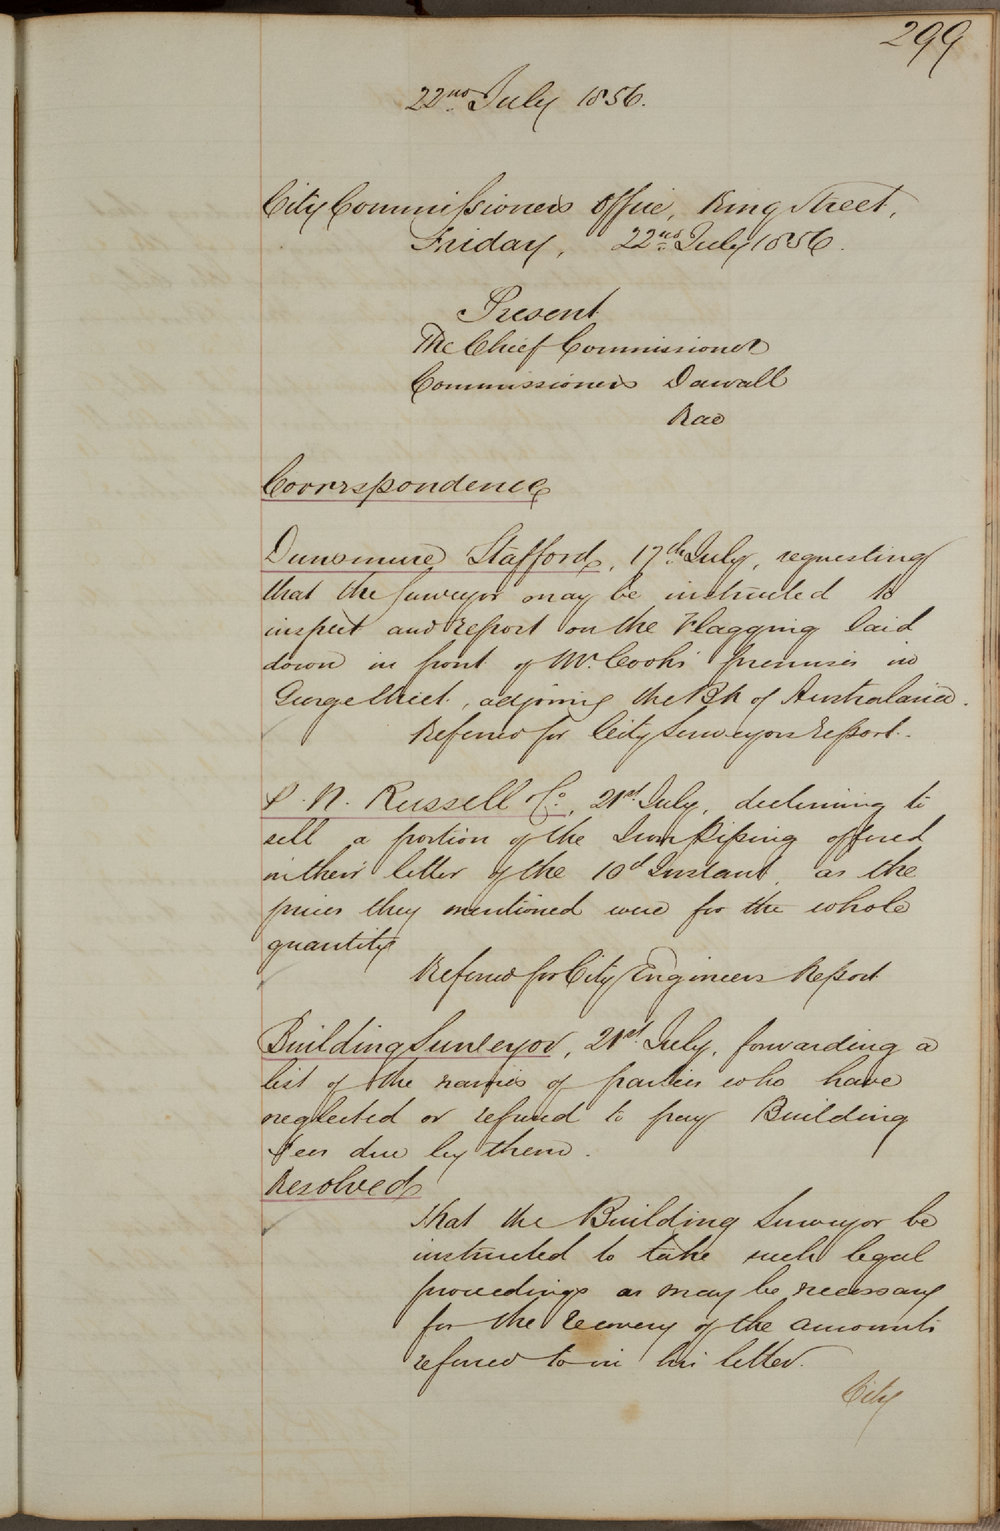 299
22nd July 1856.
City Commissioners Office, King Street,
Friday, 22nd July 1856.
Present
The Chief Commissioner
Commissioners Darvall
Rae
Correspondence
Dunsmure Stafford, 17th July, requesting
that the Surveyor may be instructed to
inspect and Report on the Flagging laid
down in front of Mr. Cook's premises in
George Street, adjoining the Bk of Australasia.
Referred for City Surveyors Report.
P. N. Russell & Co., 21st July, declining to
sell a portion of the Iron Piping offered
in their letter of the 10th Instant, as the
prices they mentioned were for the whole
quantity
Referred for City Engineers Report
Building Surveyor, 21st July, forwarding a
list of the names of parties who have
neglected or refused to pay Building
Fees due by them.
Resolved
That the Building Surveyor be
instructed to take such legal
proceedings as may be necessary
for the recovery of the amounts
referred to in his letter.
City